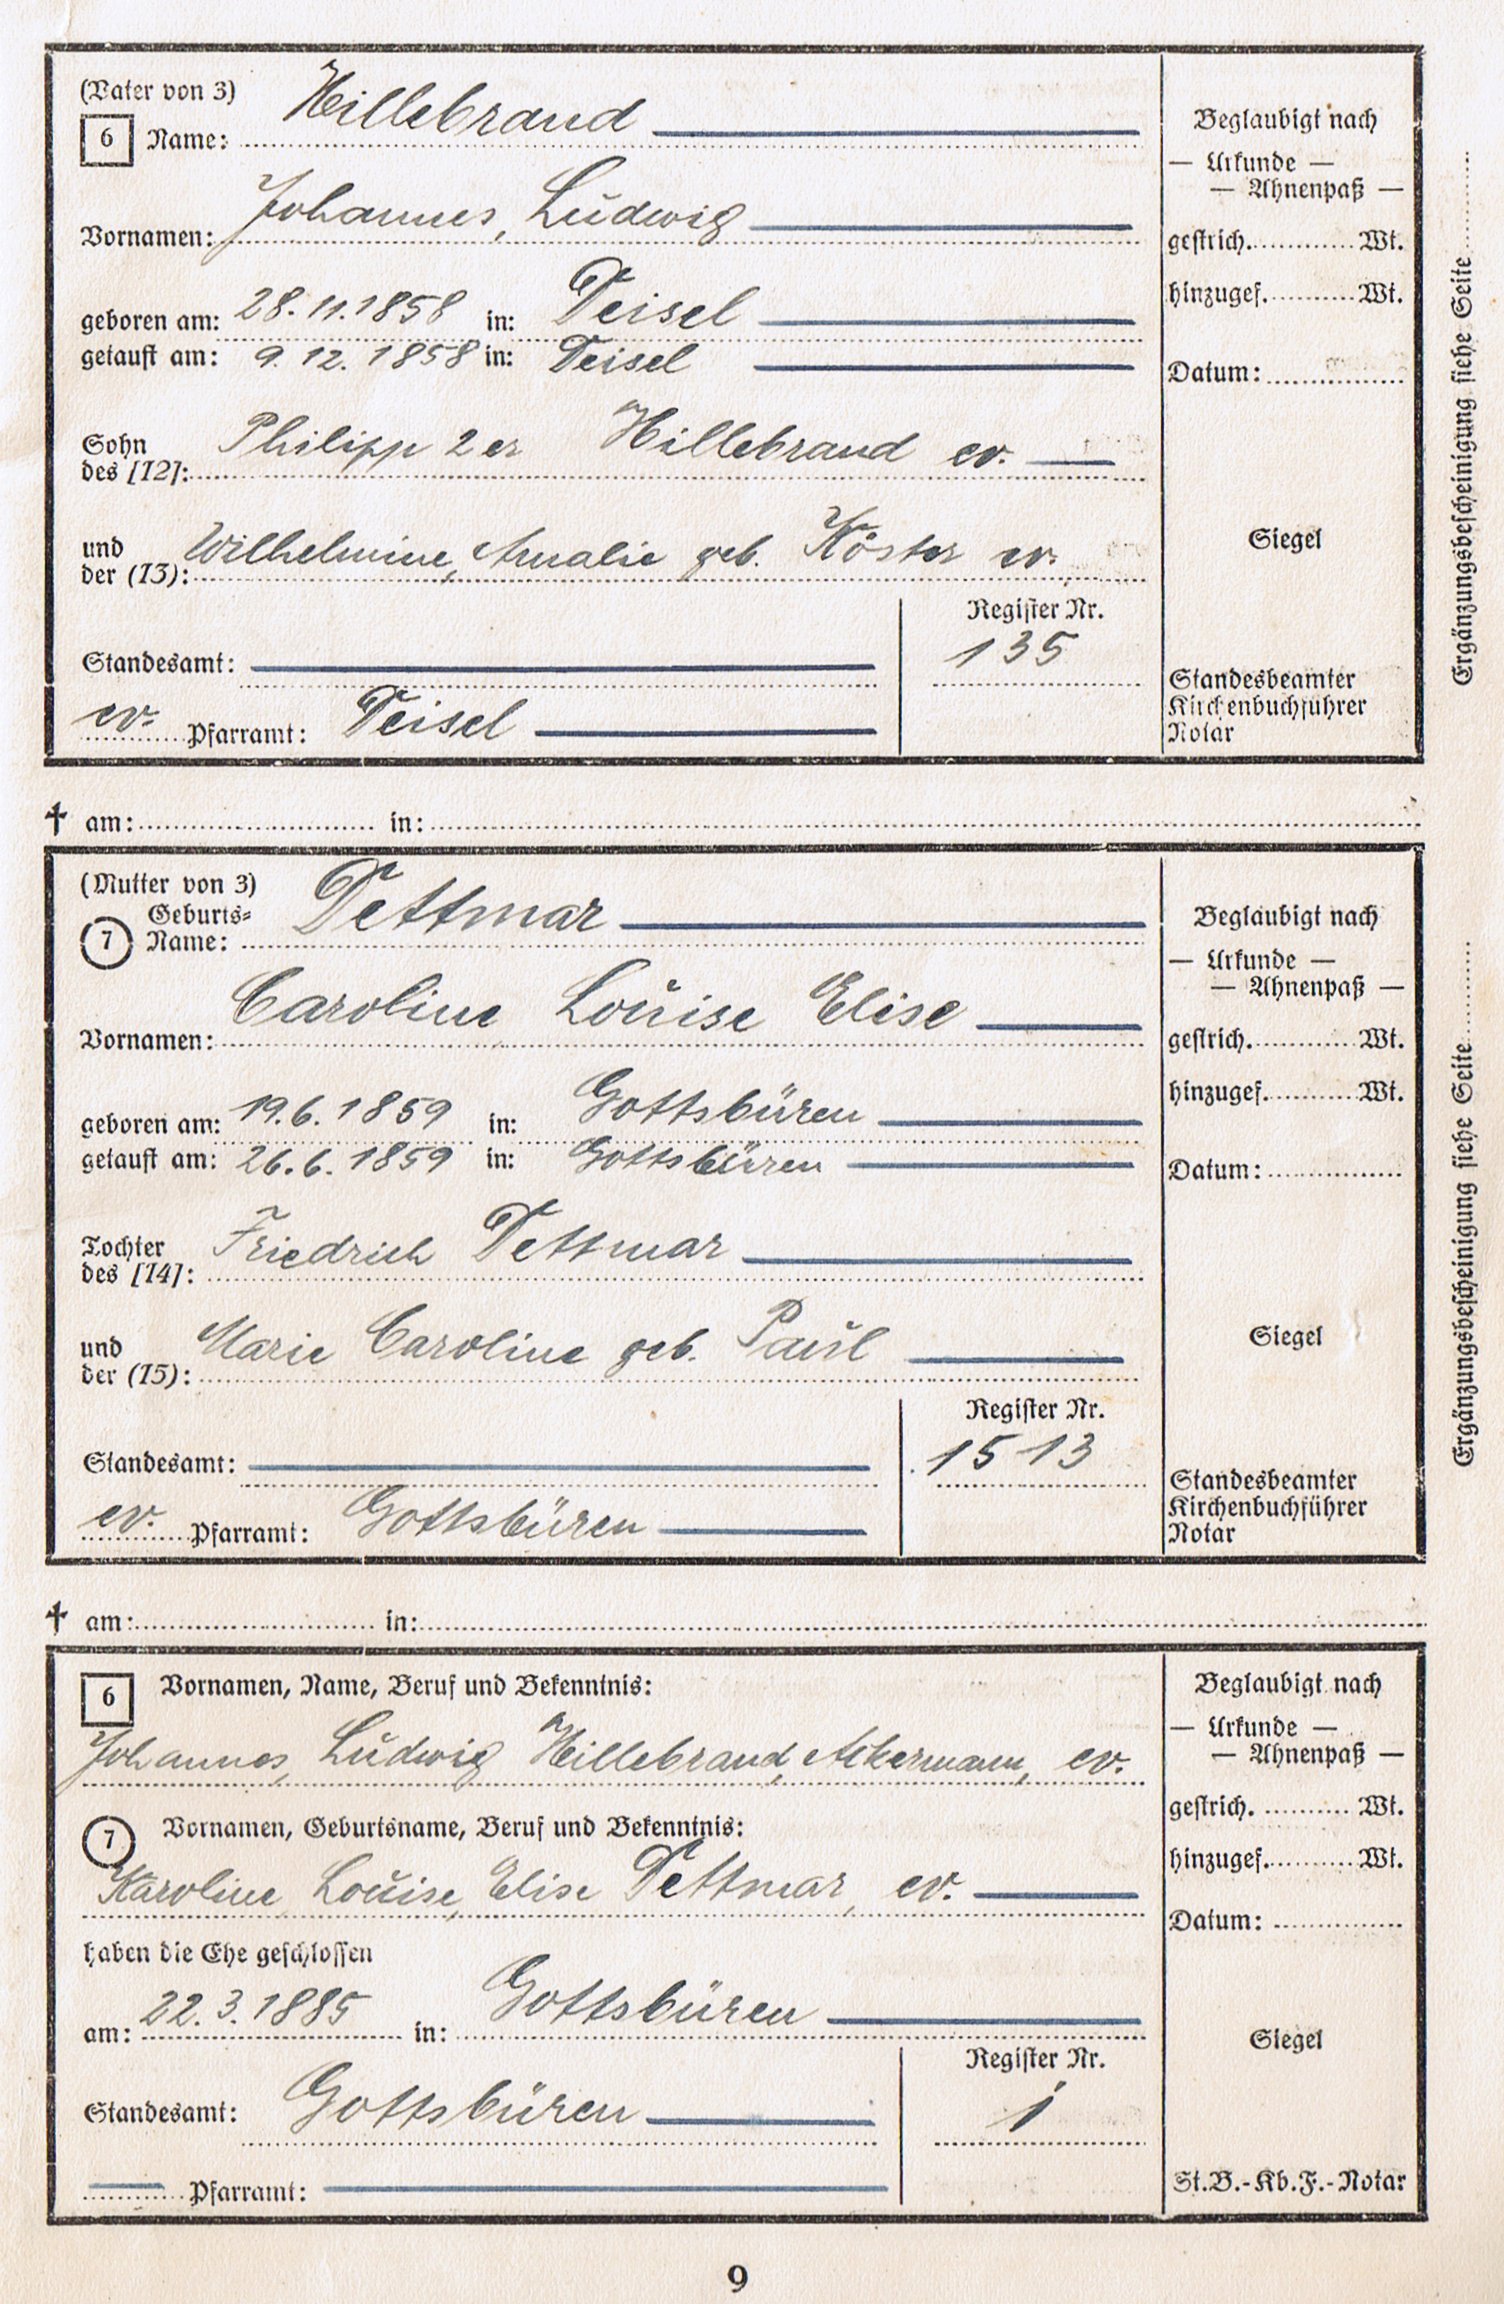 (Vater von 3)
6 Name: Hillebrand
Vornamen: Johannes, Ludwig
geboren am: 28.11.1858 in: Deisel
getauft am: 9.12.1858 in: Deisel
Sohn
des [12]: Philipp 2er Hillebrand ev.
und
der (13): Wilhelmine, Amalie geb. Köster ev.
Standesamt:
ev. Pfarramt: Deisel
Register Nr.
135
Beglaubigt nach
— Urkunde —
— Ahnenpaß —
gestrich. Wt.
hinzugef. Wt.
Datum:
Siegel
Standesbeamter
Kirchenbuchführer
Notar
Ergänzungsbescheinigung siehe Seite
✝ am: in:
(Mutter von 3)
Geburts=
7 Name: Dettmar
Vornamen: Caroline Louise Elise
geboren am: 19.6.1859 in: Gottsbüren
getauft am: 26.6.1859 in: Gottsbüren
Tochter
des [14]: Friedrich Dettmar
und
der (15): Marie Caroline geb. Paul
Standesamt:
ev. Pfarramt: Gottsbüren
Register Nr.
1513
Beglaubigt nach
— Urkunde —
— Ahnenpaß —
gestrich. Wt.
hinzugef. Wt.
Datum:
Siegel
Standesbeamter
Kirchenbuchführer
Notar
Ergänzungsbescheinigung siehe Seite
✝ am: in:
6 Vornamen, Name, Beruf und Bekenntnis:
Johannes, Ludwig Hillebrand, Ackermann, ev.
7 Vornamen, Geburtsname, Beruf und Bekenntnis:
Karoline, Louise, Elise Dettmar, ev.
haben die Ehe geschlossen
am: 22.3.1885 in: Gottsbüren
Standesamt: Gottsbüren
Pfarramt:
Register Nr.
1
Beglaubigt nach
— Urkunde —
— Ahnenpaß —
gestrich. Wt.
hinzugef. Wt.
Datum:
Siegel
St.B.-Kb.F.-Notar
9